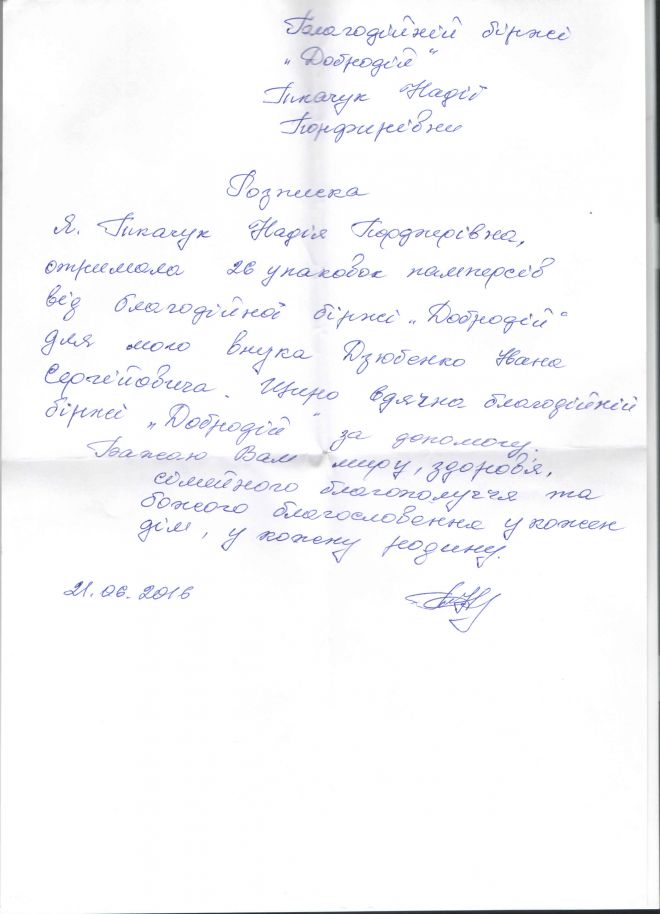 Благодійній біржі
„Добродій“
Ткачук Надії
Порфирівни
Розписка
Я. Ткачук Надія Порфирівна,
отримала 26 упаковок памперсів
від благодійної біржі „Добродій“
для мого внука Дзюбенко Івана
Сергійовича. Щиро вдячна благодійній
біржі „Добродій“ за допомогу.
Бажаю Вам миру, здоров'я,
сімейного благополуччя та
божого благословення у кожен
дім, у кожну родину.
21.06.2016